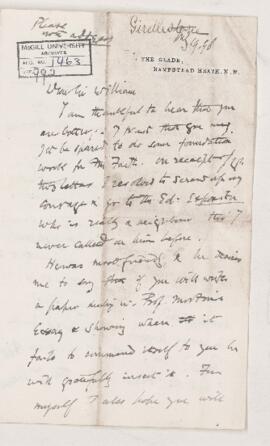 Please
note address
Girdlestone
McGILL UNIVERSITY
ARCHIVES
ACC. NO. 1463
REF. 927
THE GLADE,
HAMPSTEAD HEATH, N.W.
Dear Sir William
I am thankful to hear that you
are better. I trust that you may
be spared to do some foundation
work for the Faith. On receipt of
two letters I resolved to screw up my
courage & go to the Ed. Expositor
who is really a neighbour tho' I
never called on him before.
He was most friendly & he desires
me to say that if you will write
a paper Prof
Essay & showing where it
fails to commend itself to you he
will gratefully insert it. For
myself I also hope you will